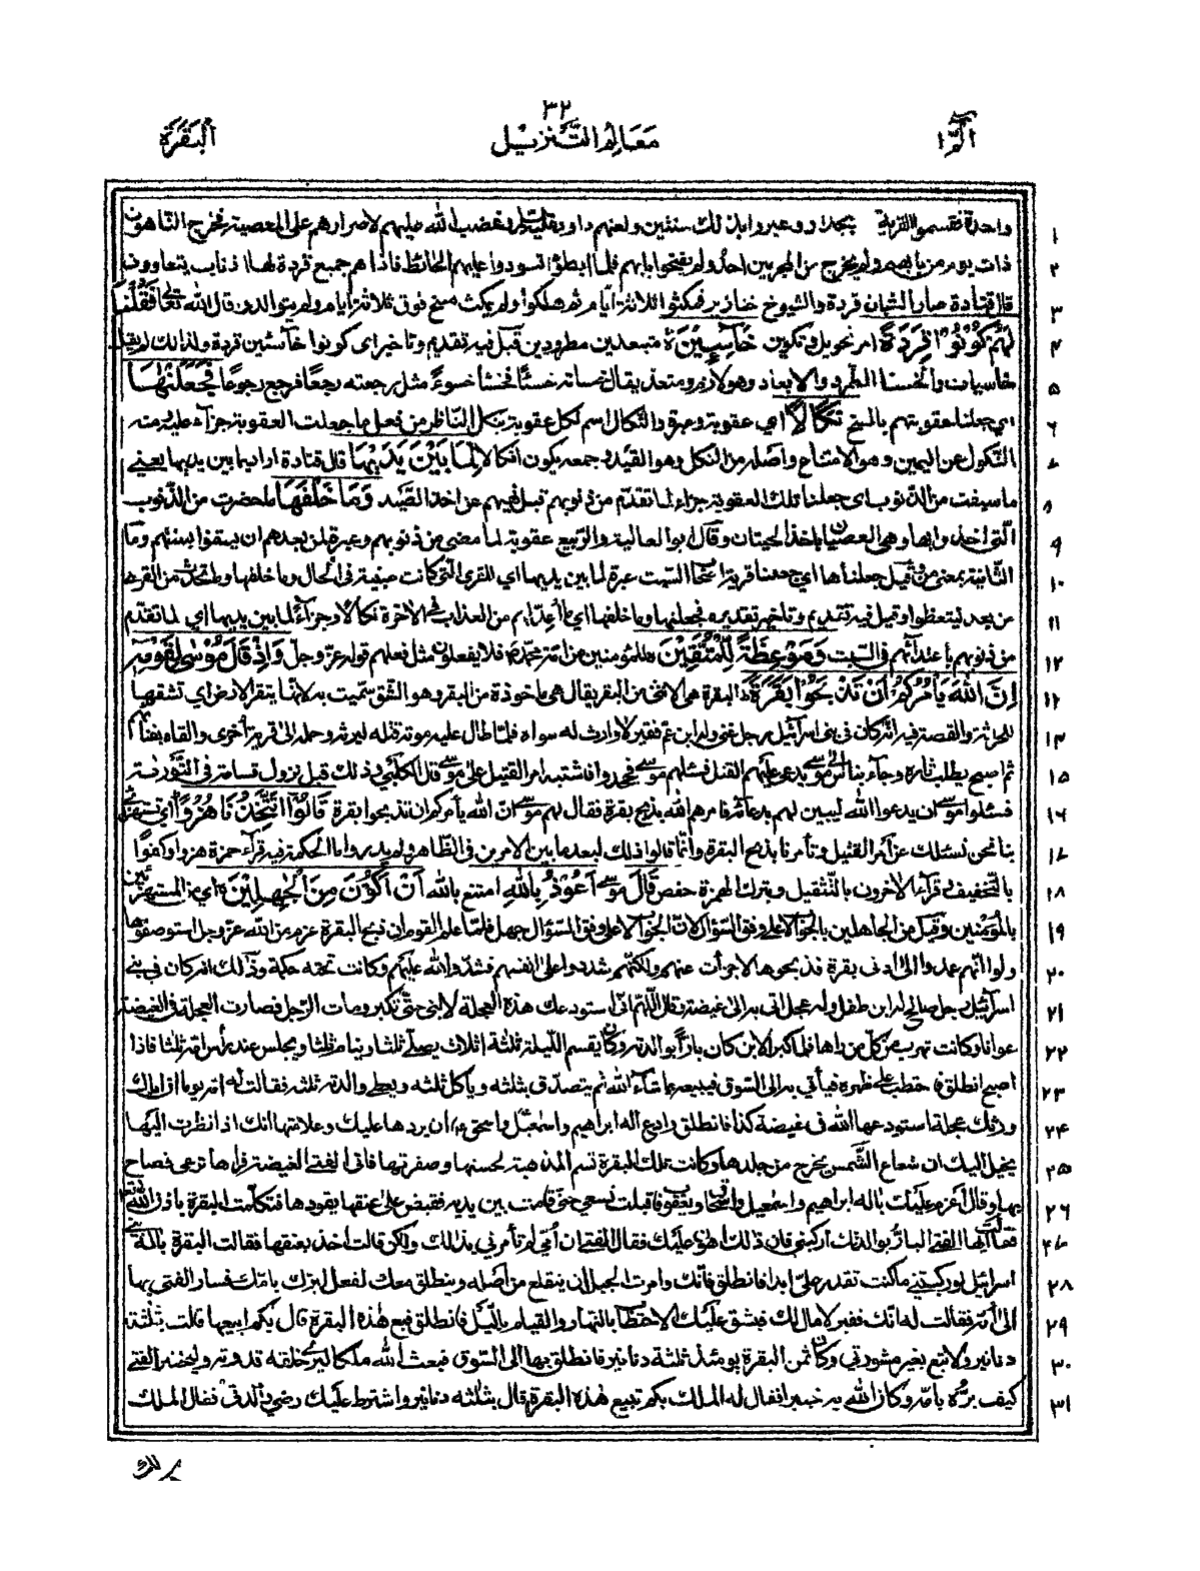 ٣٢
الٓمّ ١ معالم التنزيل البقرة
١ واحدة فقسموا القرية بجدار وعبروا بذلك سنتين ولعنهم داود وغضب الله عليهم لاصرارهم على المعصية فخرج الناهون
٢ ذات يوم من بابهم ولم يخرج من المجرمين احد ولم يفتحوا بابهم فلما ابطؤا تسوروا عليهم الحائط فاذا هم جميع قردة لها اذناب يتعاوون
٣ قال قتادة صار الشبان قردة والشيوخ خنازير فمكثوا ثلاثة ايام ثم هلكوا ولم يمكث مسخ فوق ثلاثة ايام ولم يتوالدوا قال الله تعالى فَقُلْنَا
٤ لَهُمْ كُونُوْا قِرَدَةً امر تحويل وتكوين خَاسِئِيْنَ ه مبعدين مطرودين قيل فيه تقديم وتاخير اى كونوا خاسئين قردة ولذلك لم يقل
٥ خاسيات والخسا الطرد والابعاد وهو لازم ومتعد يقال خسأته خسئًا فخسئا خسوءً مثل رجعته رجعًا فرجع رجوعًا فَجَعَلْنٰهَا
٦ اي جعلنا عقوبتهم بالمسخ نَكَالًا اي عقوبة وعبرة والنكال اسم لكل عقوبة ينكل الناظر من فعل ما جعلت العقوبة جزاء عليه ومنه
٧ النكول عن اليمين وهو الامتناع واصله من النكل وهو القيد وجمعه يكون انكالا لِّمَا بَيْنَ يَدَيْهَا قال قتادة اراد بما بين يديها يعني
٨ ما سبقت من الذنوب اى جعلنا تلك العقوبة جزاء لما تقدم من ذنوبهم قبل نهيهم عن اخذ الصيد وَمَا خَلْفَهَا ما حضرت من الذنوب
٩ التي اخذوا بها وهي العصيان باخذ الحيتان وقال ابو العالية والربيع عقوبة لما مضى من ذنوبهم وعبرة لمن بعدهم ان يستنوا بسنتهم وما
١٠ الثانية بمعنى من وقيل جعلناها اي جعلنا قرية اصحاب السبت عبرة لما بين يديها اي للقرى التي كانت مبنية في الحال وما خلفها وما يحدث من القرى
١١ من بعد ليتعظوا وقيل فيه تقديم وتاخير تقديره فجعلنها وما خلفها اي ما اعد لهم من العذاب في الاخرة نكالا وجزاءً لما بين يديها اي لما تقدم
١٢ من ذنوبهم باعتدائهم في السبت وَمَوْعِظَةً لِّلْمُتَّقِيْنَ ه للمؤمنين من امة محمد فلا يفعلون مثل فعلهم قوله عز وجل وَاِذْ قَالَ مُوْسٰى لِقَوْمِهٖ
١٣ اِنَّ اللهَ يَأْمُرُكُمْ اَنْ تَذْبَحُوْا بَقَرَةً البقرة هي الانثى من البقر يقال هي ماخوذة من البقر وهو الشق سميت به لانها تبقر الارض اي تشقها
١٤ للحراثة والقصة فيه انه كان في بنى اسرائيل رجل غنى وله ابن عم فقير لا وارث له سواه فلما طال عليه موته قتله ليرثه وحمله الى قرية اخرى والقاه بفنائهم
١٥ ثم اصبح يطلب ثاره وجاء بناس الى موسى يدعى عليهم القتل فسئلهم موسى فجحدوا فاشتبه امر القتيل على موسى قال الكلبي وذلك قبل نزول قسامة في التورٰىة
١٦ فسئلوا موسى ان يدعوا الله ليبين لهم بدعائه فامرهم الله بذبح بقرة فقال لهم موسى ان الله يأمركم ان تذبحوا بقرة قَالُوْٓا اَتَتَّخِذُنَا هُزُوًا اي تستهزئ
١٧ بنا نحن نسئلك عن امر القتيل وتأمرنا بذبح البقرة وانما قالوا ذلك لبعد ما بين الامرين في الظاهر ولم يدروا ما الحكمة فيه قرأ حمزة هزوا وكفوًا
١٨ بالتخفيف وقرأ الاخرون بالتثقيل وبترك الهمزة حفص قَالَ موسى اَعُوْذُ بِاللهِ امتنع بالله اَنْ اَكُوْنَ مِنَ الْجٰهِلِيْنَ ه اي من المستهزئين
١٩ بالمؤمنين وقيل من الجاهلين بالجواب لا على وفق السؤال لان الجواب لا على وفق السؤال جهل فلما علم القوم ان ذبح البقرة عزم من الله عز وجل استوصفوها
٢٠ ولو انهم عمدوا الى ادنى بقرة فذبحوها لاجزأت عنهم ولكنهم شددوا على انفسهم فشدد الله عليهم وكانت تحته حكمة وذلك انه كان في بني
٢١ اسرائيل رجل صالح له ابن طفل وله عجل اتى بها الى غيضة وقال اللهم اني استودعك هذه العجلة لابني حتى تكبر ومات الرجل فصارت العجلة في الغيضة
٢٢ عوانا وكانت تهرب من كل من راها فلما كبر الابن كان بارًّا بوالدته وكان يقسم الليلة ثلثة اثلاث يصلي ثلثا وينام ثلثا ويجلس عند رأس امه ثلثا فاذا
٢٣ اصبح انطلق فاحتطب على ظهره فيأتي به الى السوق فيبيعه بما شاء الله ثم يتصدق بثلثه وياكل ثلثه ويعطي والدته ثلثه فقالت له امه يوما ان اباك
٢٤ ورثك عجلة استودعها الله في غيضة كذا فانطلق وادع اله ابراهيم واسمعيل واسحق ان يردها عليك وعلامتها انك اذا نظرت اليها
٢٥ يخيل اليك ان شعاع الشمس يخرج من جلدها وكانت تلك البقرة تسمى المذهبة لحسنها وصفرتها فاتى الفتى الغيضة فراها ترعى فصاح
٢٦ بها وقال اعزم عليك باله ابراهيم واسمعيل واسحاق ويعقوب فاقبلت تسعى حتى قامت بين يديه فقبض على عنقها يقودها فتكلمت البقرة باذن الله تعالى
٢٧ فقالت ايها الفتى البار بوالدتك اركبني فان ذلك اهون عليك فقال الفتى ان امي لم تأمرني بذلك ولكن قالت خذ بعنقها فقالت البقرة باله بني
٢٨ اسرائيل لو ركبتني ما كنت تقدر علي ابدا فانطلق فانك لو امرت الجبل ان ينقلع من اصله وينطلق معك لفعل لبرك بامك فسار الفتى بها
٢٩ الى امه فقالت له انك فقير لا مال لك فيشق عليك الاحتطاب بالنهار والقيام بالليل فانطلق فبع هذه البقرة قال بكم ابيعها قالت بثلثة
٣٠ دنانير ولا تبع بغير مشورتي وكان ثمن البقرة يومئذ ثلثة دنانير فانطلق بها الى السوق فبعث الله ملكا ليرى خلقه قدرته وليختبر الفتى
٣١ كيف بره بامه وكان الله به خبيرا فقال له الملك بكم تبيع هذه البقرة قال بثلثه دنانير واشترط عليك رضى والدتي فقال الملك